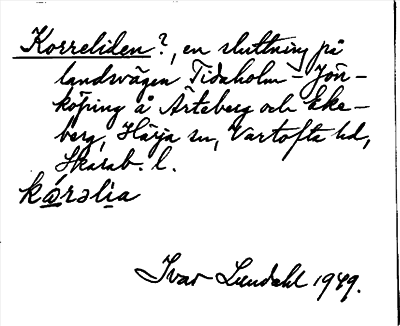 Korreliden?, en sluttning på
landsvägen Tidaholm – Jön-
köping å Ärteberg och Eke-
berg, Härja sn, Vartofta hd,
Skarab. l.
kǻrəlia
Ivar Lundahl 1949.